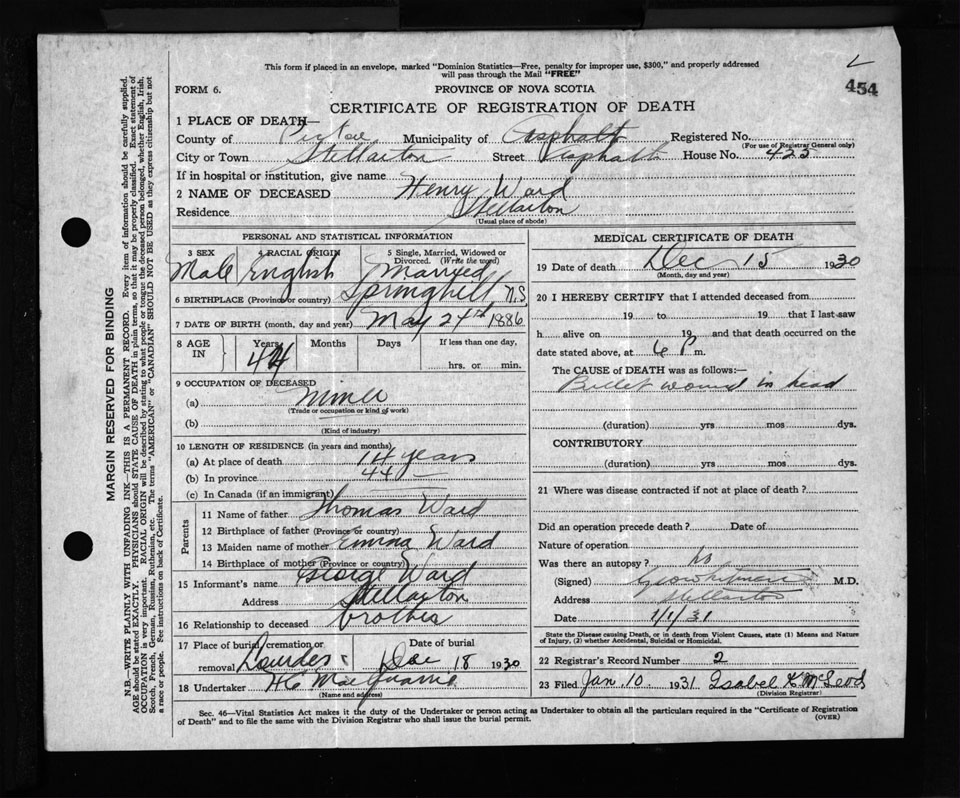 454
This form if placed in an envelope, marked "Dominion Statistics—Free, penalty for improper use, $300," and properly addressed
will pass through the Mail "FREE"
FORM 6.
PROVINCE OF NOVA SCOTIA
CERTIFICATE OF REGISTRATION OF DEATH
1 PLACE OF DEATH—
County of Pictou Municipality of Asphalt Registered No.
(For use of Registrar General only)
City or Town Stellarton Street Asphalt House No. 425
If in hospital or institution, give name
2 NAME OF DECEASED Henry Ward
Residence Stellarton
(Usual place of abode)
PERSONAL AND STATISTICAL INFORMATION
3 SEX Male
4 RACIAL ORIGIN English
5 Single, Married, Widowed or
Divorced. (Write the word)
Married
6 BIRTHPLACE (Province or country) Springhill, N.S.
7 DATE OF BIRTH (month, day and year) May 24th 1886
8 AGE IN Years Months Days If less than one day,
44 hrs. or min.
9 OCCUPATION OF DECEASED
(a) Miner
(Trade or occupation or kind of work)
(b)
(Kind of industry)
10 LENGTH OF RESIDENCE (in years and months)
(a) At place of death 14 years
(b) In province 44
(c) In Canada (if an immigrant)
Parents
11 Name of father Thomas Ward
12 Birthplace of father (Province or country)
13 Maiden name of mother Emma Ward
14 Birthplace of mother (Province or country)
15 Informant's name George Ward
Address Stellarton
16 Relationship to deceased brother
17 Place of burial, cremation or
removal Lourdes
Date of burial
Dec 18 1930
18 Undertaker H C
(Name and address)
MEDICAL CERTIFICATE OF DEATH
19 Date of death Dec 15 1930
(Month, day and year)
20 I HEREBY CERTIFY that I attended deceased from
19 to 19 that I last saw
h alive on 19 and that death occurred on the
date stated above, at 6 P m.
The CAUSE of DEATH was as follows:—
Bullet wound in head
(duration) yrs mos dys.
CONTRIBUTORY
(duration) yrs mos dys.
21 Where was disease contracted if not at place of death?
Did an operation precede death? Date of
Nature of operation
Was there an autopsy? No
(Signed) M.D.
Address Stellarton
Date 1/1/31
State the Disease causing Death, or in death from Violent Causes, state (1) Means and Nature
of Injury, (2) whether Accidental, Suicidal or Homicidal.
22 Registrar's Record Number 2
23 Filed Jan. 10 1931 Isabel K McLeod
(Division Registrar)
Sec. 46—Vital Statistics Act makes it the duty of the Undertaker or person acting as Undertaker to obtain all the particulars required in the "Certificate of Registration
of Death" and to file the same with the Division Registrar who shall issue the burial permit.
(OVER)
MARGIN RESERVED FOR BINDING
N.B.—WRITE PLAINLY WITH UNFADING INK—THIS IS A PERMANENT RECORD. Every item of information should be carefully supplied.
AGE should be stated EXACTLY. PHYSICIANS should STATE CAUSE OF DEATH in plain terms, so that it may be properly classified. Exact statement of
OCCUPATION is very important. RACIAL ORIGIN will be described by stating to what people or tongue the deceased person belonged, whether English, Irish,
Scotch, French, German, Russian, Ruthenian, etc. The terms "AMERICAN" or "CANADIAN" SHOULD NOT BE USED as they express citizenship but not
a race or people. See instructions on back of Certificate.